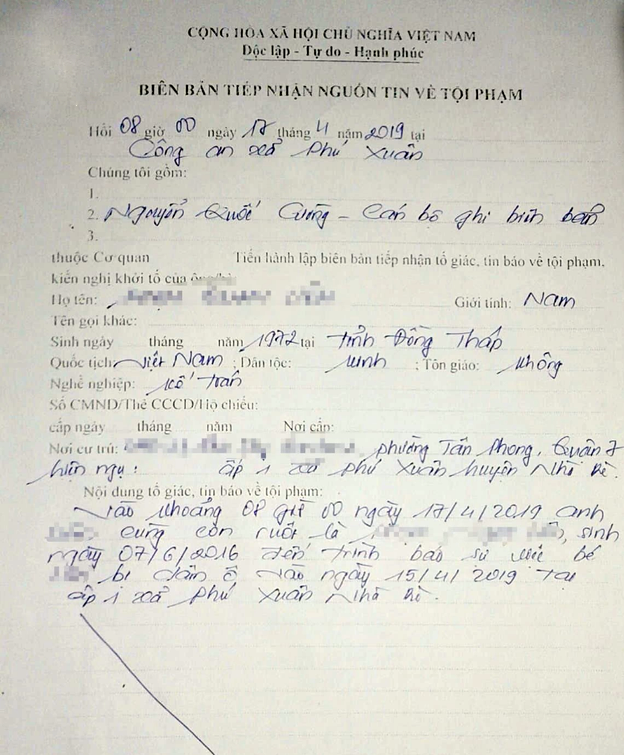 CỘNG HÒA XÃ HỘI CHỦ NGHĨA VIỆT NAM
Độc lập - Tự do - Hạnh phúc
BIÊN BẢN TIẾP NHẬN NGUỒN TIN VỀ TỘI PHẠM
Hồi 08 giờ 00 ngày 17 tháng 4 năm 2019 tại
Công an xã Phú Xuân
Chúng tôi gồm:
1.
2. Nguyễn Quốc Cường - Cán bộ ghi biên bản
3.
thuộc Cơ quan Tiến hành lập biên bản tiếp nhận tố giác, tin báo về tội phạm,
kiến nghị khởi tố của ông/bà:
Họ tên: Giới tính: Nam
Tên gọi khác:
Sinh ngày tháng năm 1972 tại Tỉnh Đồng Tháp
Quốc tịch: Việt Nam ; Dân tộc: Kinh ; Tôn giáo: Không
Nghề nghiệp:
Số CMND/Thẻ CCCD/Hộ chiếu:
cấp ngày tháng năm Nơi cấp:
Nơi cư trú: , phường Tân Phong, Quận 7
hiện ngụ: ấp 1 xã Phú Xuân huyện Nhà Bè.
Nội dung tố giác, tin báo về tội phạm:
Vào khoảng 08 giờ 00 ngày 17/4/2019 anh
cùng con ruột là , sinh
ngày 07/6/2016 đến trình báo sự việc bé
bị dâm ô vào ngày 15/4/2019 tại
ấp 1 xã Phú Xuân Nhà Bè.